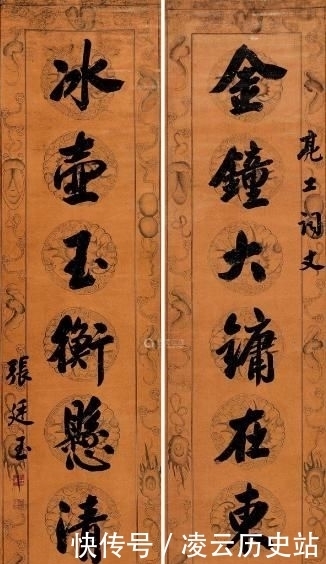 亮工詞丈
金鐘大鏞在東
冰壺玉衡懸清
張廷玉
快传号 / 凌云历史站